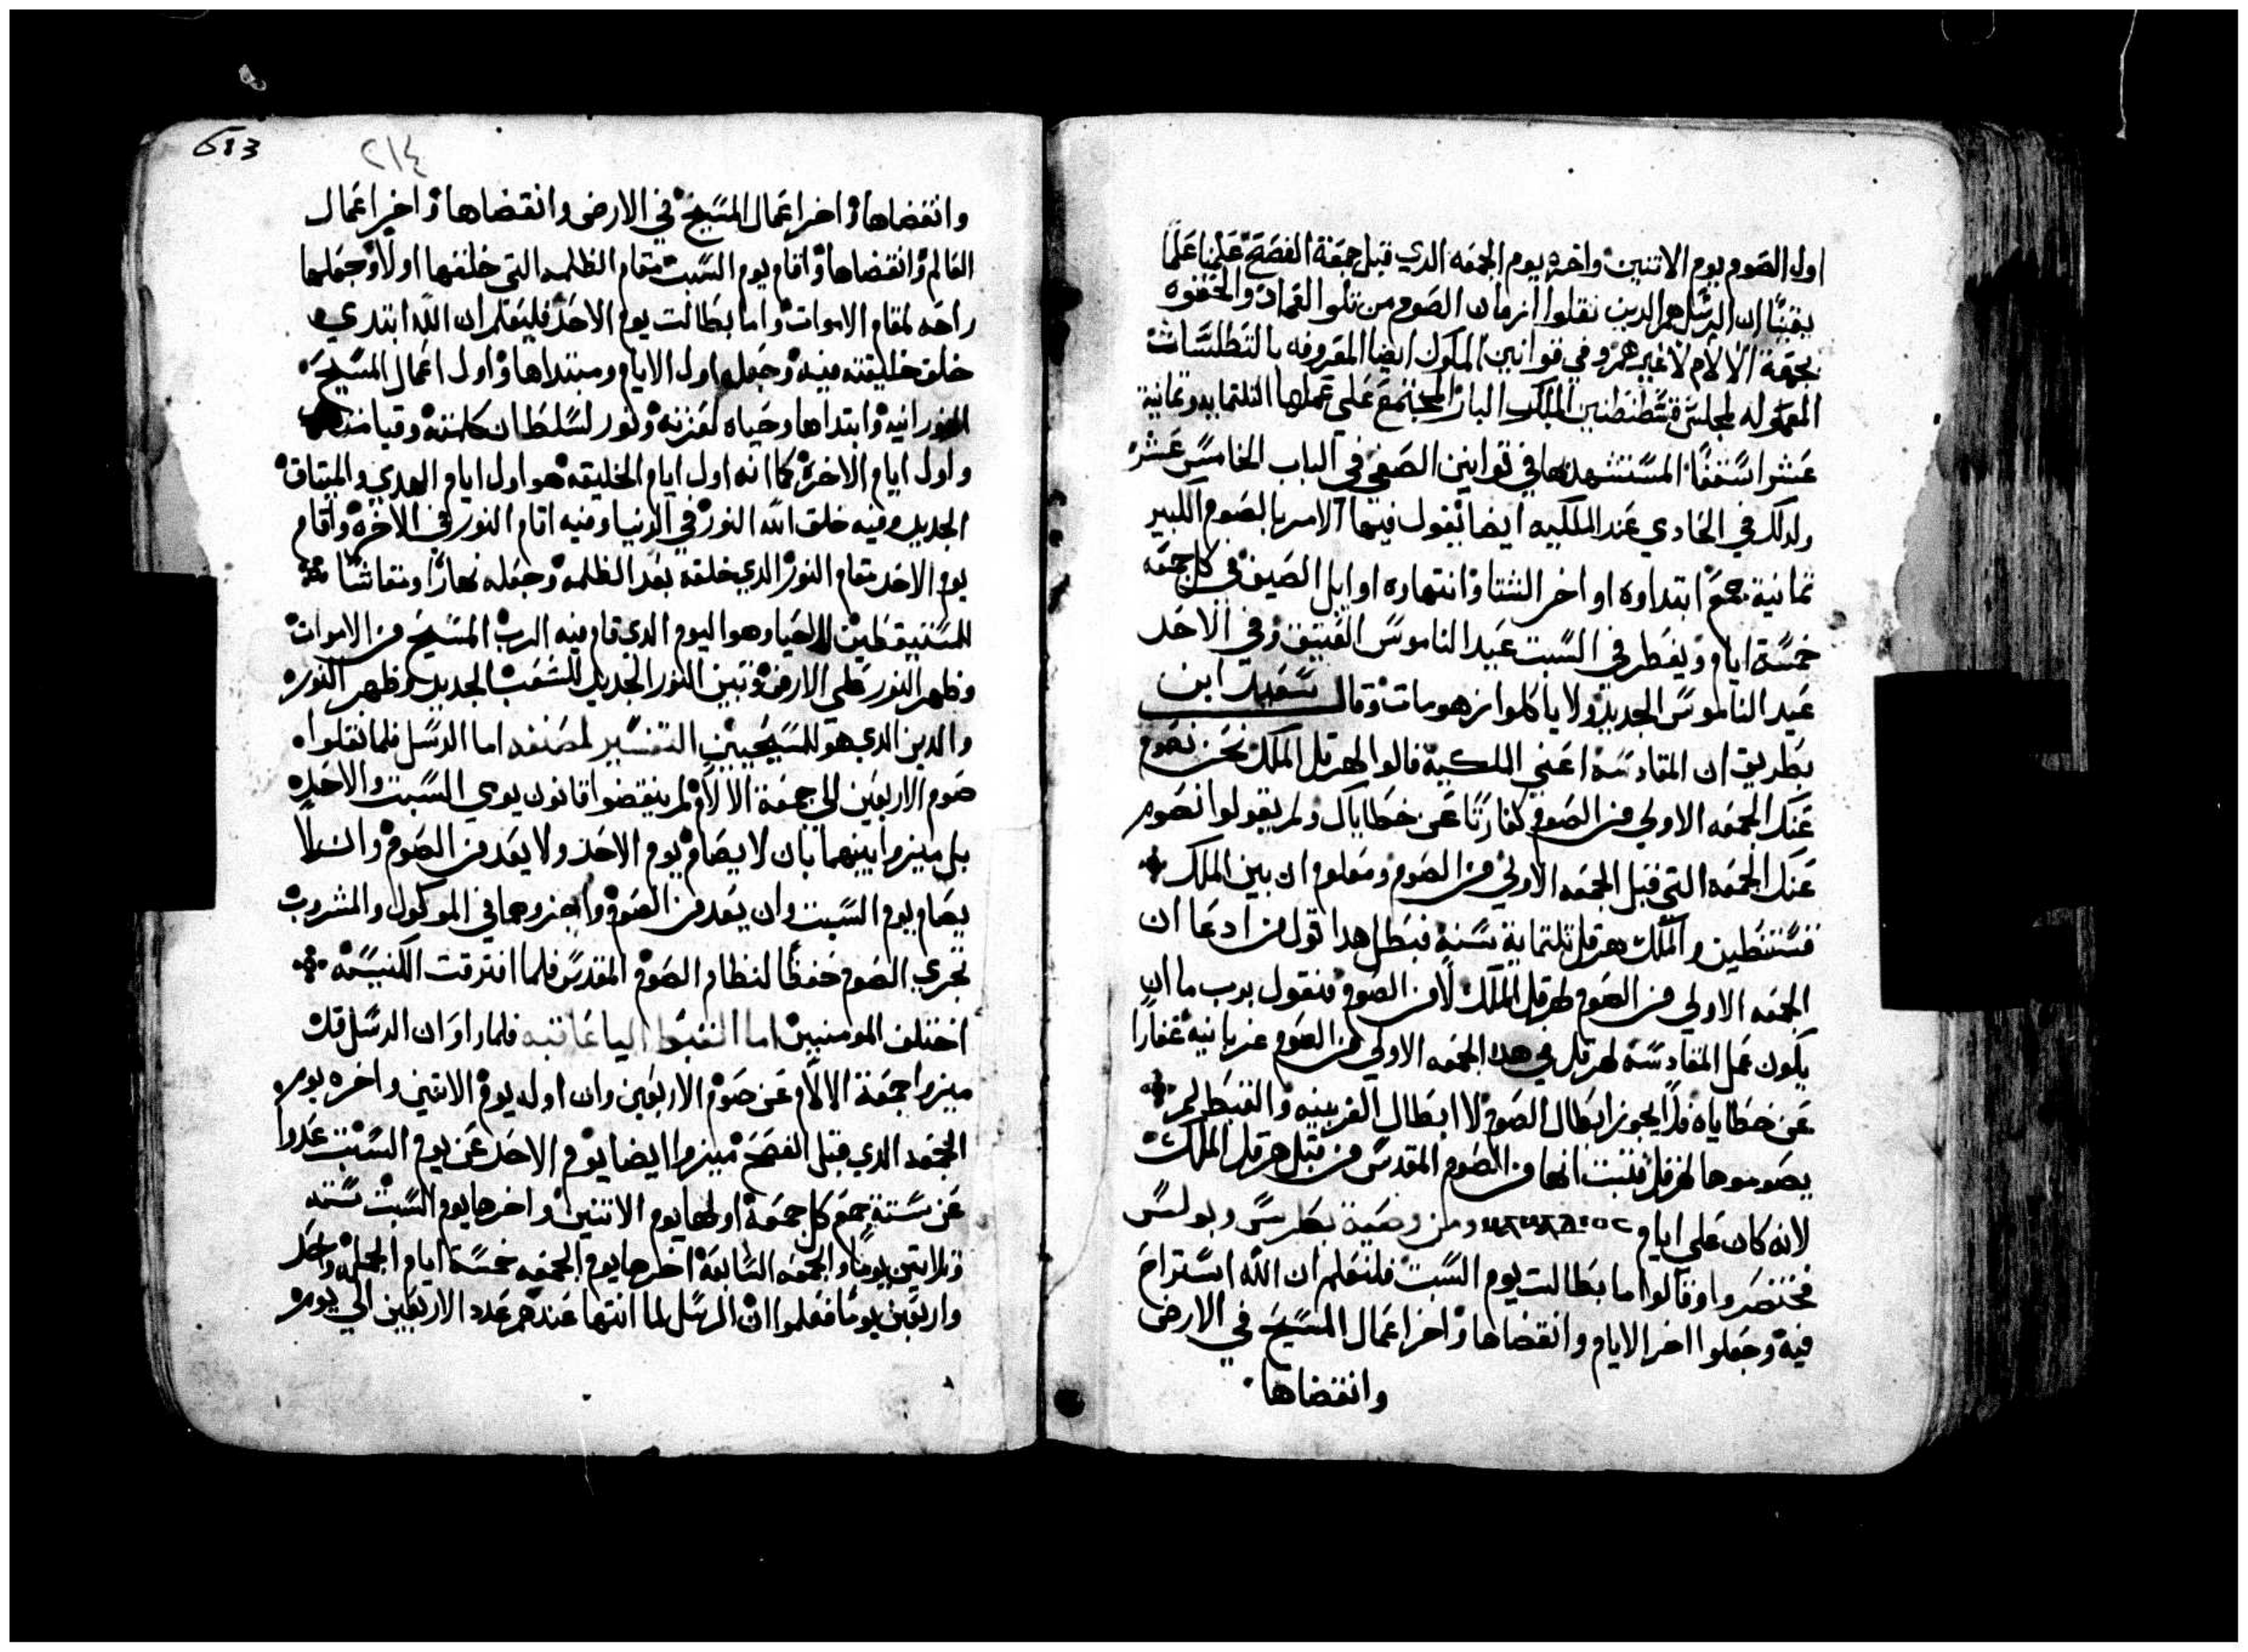 اول الصوم يوم الاتنين واخره يوم الجمعه الدي قبل جمعة الفصح علمنا علما
يقينا ان الرسل هم الدين نقلوا زمان الصوم من تلو العماد والحقوه
بجمعة الالام لا غيرهم وفي قوانين الملوك ايضا المعروفه بالتطلسات
المعموله لمجلس قسطنطنين الملك البار المجتمع على عملها التلتمايه وتمانية
عشر اسقفا المستشهد بها في قوانين الصفي في الباب الخامس عشر
ولدلك في الحادي عند الملكيه ايضا يقول فيها الامر بالصوم الكبير
تمانية جمع ابتداوه اواخر الشتا وانتهاوه اوايل الصيف في كل جمعه
خمسة ايام ويفطر في السبت عيد الناموس العتيق وفي الاحد
عيد الناموس الجديد ولا ياكلوا زهومات وقال سعيد ابن
بطريق ان المقادسه اعني الملكيه قالوا لهرقل الملك نحن نصوم
عنك الجمعه الاولي من الصوم كفارتا عن خطاياك ولم يقولوا نصوم
عنك الجمعه التي قبل الجمعه الاولي من الصوم ومعلوم ان بين الملك
قسنطين والملك هرقل تلتماية سنه فبطل هدا قول من ادعا ان
الجمعه الاولي من الصوم لهرقل الملك لا من الصوم فنقول يرب ما ان
يكون عمل المقادسه لهرقل في هده الجمعه الاولي من الصوم غفارا
عن خطاياه فلا يجوز ابطال الصوم لا ابطال والقبط لم
يصوموها لهرقل فتبت انها من الصوم المقدس من قبل هرقل الملك
لانه كان على ايام ومن وصية بطرس وبولس
مختصر وقالوا اما بطالت يوم السبت فلنعلم ان الله استراح
فيه وجعلوا اخر الايام وانقضاها واخر اعمال المسيح في الارض
وانقضاها
613
٢١٤
وانقضاها واخر اعمال المسيح في الارض وانقضاها واخر اعمال
العالم وانقضاها واقام يوم السبت مقام الظلمه التي خلقها اولا وجعلها
راحه لمقام الاموات واما بطالت يوم الاحد فليعلم ان الله ابتدي
خلق خليقته فيه وجعله اول الايام ومبتداها واول اعمال المسيح
النورانيه وابتداها وحياه لعزته ونور لسلطان كلمته وقيامته
واول ايام الاخره كما انه اول ايام الخليقه هو اول ايام الهدي والميتاق
الجديد وفيه خلق الله النور في الدنيا وفيه اتام النور في الاخره واقام
يوم الاحد مقام النور الدي خلقه بعد الظلمه وجعله نهارا ومعاشا
للمستيقظين للحيا وهو اليوم الدي قام فيه الرب المسيح من الاموات
وظهر النور على الارض وتبين النور الجديد للشعب الجديد وظهر النور
والدين الدي هو للمسيحيين التفسير لمصنفه اما الرسل فلما نقلوا
صوم الاربعين الي جمعة الالام لم ينقضوا قانون يومي السبت والاحد
بل ميزوا بينهما بان لا يصام يوم الاحد ولا يعد من الصوم وان لا
يصام يوم السبت وان يعد من الصوم واجزوهما في الموكول والمشروب
مجري الصوم حفظا لنظام الصوم المقدس فلما افترقت الكنيسه
اختلف المومنين اما القبط اليعاقبه فلما راوا ان الرسل قد
ميزوا جمعة الالام عن صوم الاربعين وان اوله يوم الاتنين واخره يوم
الجمعه الدي قبل الفصح ميزوا ايضا يوم الاحد عن يوم السبت عدوا
عن ستة جمع كل جمعة اولها يوم الاتنين واخرها يوم السبت سته
وتلاتين يوما والجمعه السابعه اخرها يوم الجمعه خمسة ايام الجمله واحد
واربعين يوما فعلموا ان الرسل لما انتها عندهم عدد الاربعين الي يوم